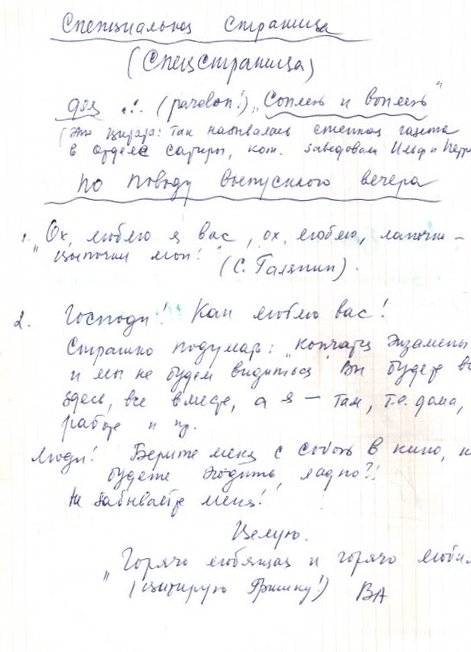 Специальная страница
(Спецстраница)
для ... (pardon!) „Сопли и вопли"
(Это цитата: так называлась стенная газета
в отделе сатиры, кот. заведовали Ильф и Петр
по поводу выпускного вечера
1. „Ох, люблю я вас, ох, люблю, лапочки –
цыпочки мои!" (С. Галяпин).
2. Господи! Как люблю вас!
Страшно подумать: „кончатся экзамены
и мы не будем видиться" Вы будете вс
здесь, все вместе, а я – там, т.е. дома,
работе и пр.
Люди! Берите меня с собой в кино, к
будете ходить, ладно?!
Не забывайте меня!
Целую.
„Горячо любящая и горячо люби
(цитирую Фришку!) ВА